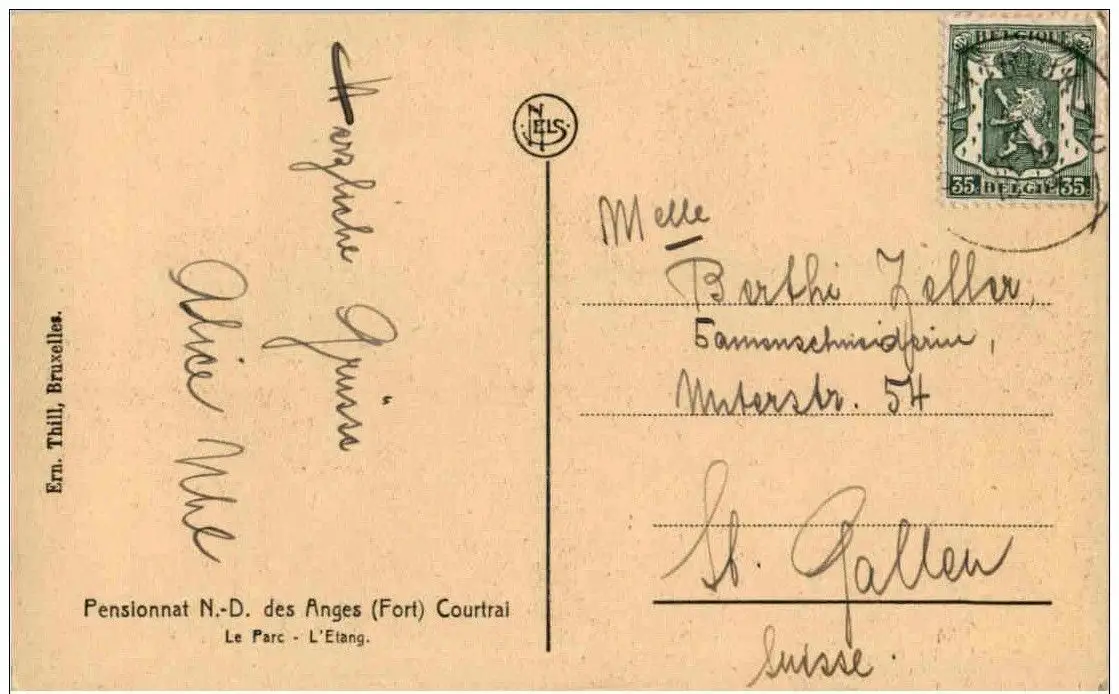 Herzliche Grüsse
Alice
BELGIQUE
35 BELGIË 35
NELS
Melle
Berthi Zeller,
Damenschneiderin,
Unterstr. 54
St. Gallen
Suisse.
Ern. Thill, Bruxelles.
Pensionnat N.-D. des Anges (Fort) Courtrai
Le Parc - L'Etang.